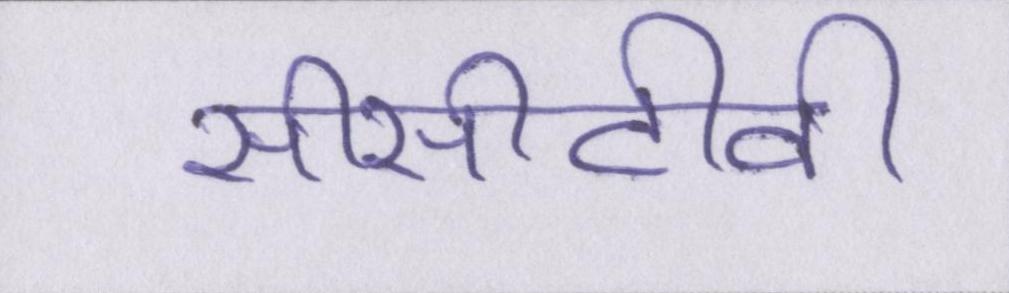 सीसीटीवी